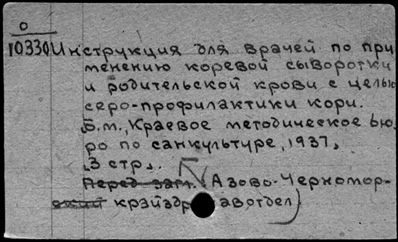 О
10330 Инструкция для врачей по при
менению коревой сыворотки
и родительской крови с целью
серо-профилактики кори.
Б.м., Краевое методическое бю-
ро по санкультуре, 1937,
3 стр.
Перед загл. Азово-Черномор-
ский крайздравотдел)